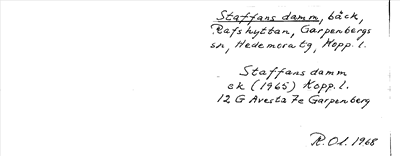 Staffans damm, bäck,
Rafshyttan, Garpenbergs
sn, Hedemora tg, Kopp. l.
Staffans damm
ek (1965) Kopp. l.
12 G Avesta 7e Garpenberg
R.Ol. 1968